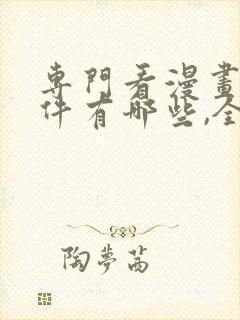 專門看漫畫
件有哪些,全
陶夢茜